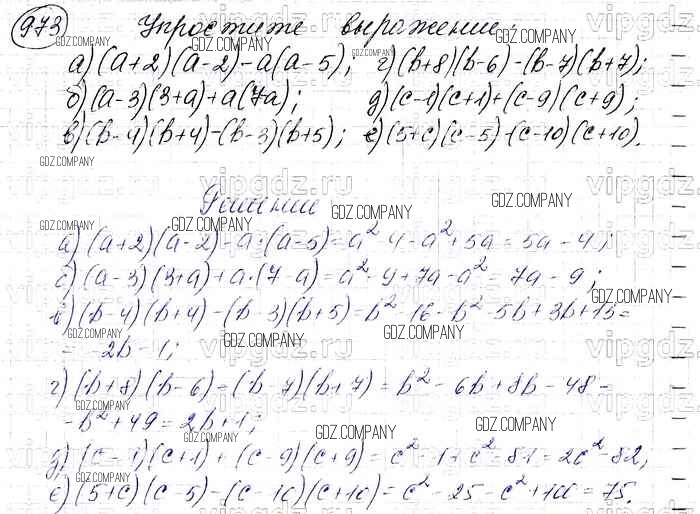 973 Упростите выражение:
а) (а+2)(а-2)-а(а-5); г) (b+8)(b-6)-(b-7)(b+7);
б) (а-3)(3+а)+а(7а); д) (c-1)(c+1)+(c-9)(c+9);
в) (b-4)(b+4)-(b-3)(b+5); е) (5+c)(c-5)-(c-10)(c+10).
Решение:
а) (а+2)(а-2)-а·(а-5)=а²-4-а²+5а=5а-4;
б) (а-3)(3+а)+а·(7-а)=а²-9+7а-а²=7а-9;
в) (b-4)(b+4)-(b-3)(b+5)=b²-16-b²-5b+3b+15=
= -2b-1;
г) (b+8)(b-6)-(b-7)(b+7)=b²-6b+8b-48-
-b²+49=2b+1;
д) (c-1)(c+1)+(c-9)(c+9)=c²-1+c²-81=2c²-82;
е) (5+c)(c-5)-(c-10)(c+10)=c²-25-c²+100=75.
GDZ.COMPANY
vipgdz.ru